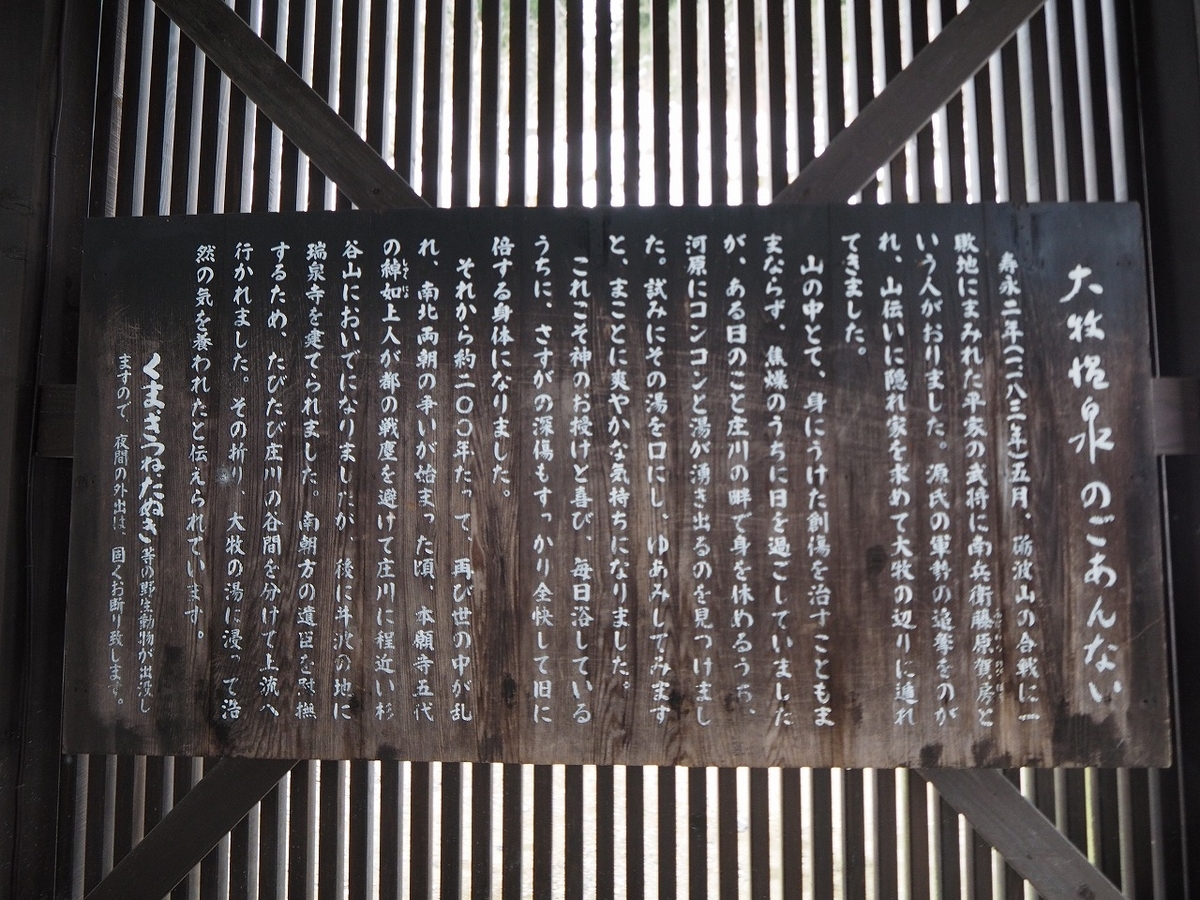 大牧温泉のごあんない
寿永二年(一一八三年)五月、砺波山の合戦に一
敗地にまみれた平家の武将に南兵衛藤原賀房と
いう人がおりました。源氏の軍勢の追撃をのが
れ、山伝いに隠れ家を求めて大牧の辺りに逃れ
てきました。
山の中とて、身にうけた創傷を治すこともま
まならず、焦燥のうちに日を過ごしていました
が、ある日のこと庄川の畔で身を休めるうち、
河原にコンコンと湯が湧き出るのを見つけまし
た。試みにその湯を口にし、ゆあみしてみます
と、まことに爽やかな気持ちになりました。
これこそ神のお授けと喜び、毎日浴している
うちに、さすがの深傷もすっかり全快して旧に
倍する身体になりました。
それから約二〇〇年たって、再び世の中が乱
れ、南北両朝の争いが始まった頃、本願寺五代
の綽如上人が都の戦塵を避けて庄川に程近い杉
谷山においでになりましたが、後に井波の地に
瑞泉寺を建てられました。南朝方の遺臣を慰撫
するため、たびたび庄川の谷間を分けて上流へ
行かれました。その折り、大牧の湯に浸って浩
然の気を養われたと伝えられています。
くま、きつね、たぬき等の野生動物が出没し
ますので、夜間の外出は、固くお断り致します。